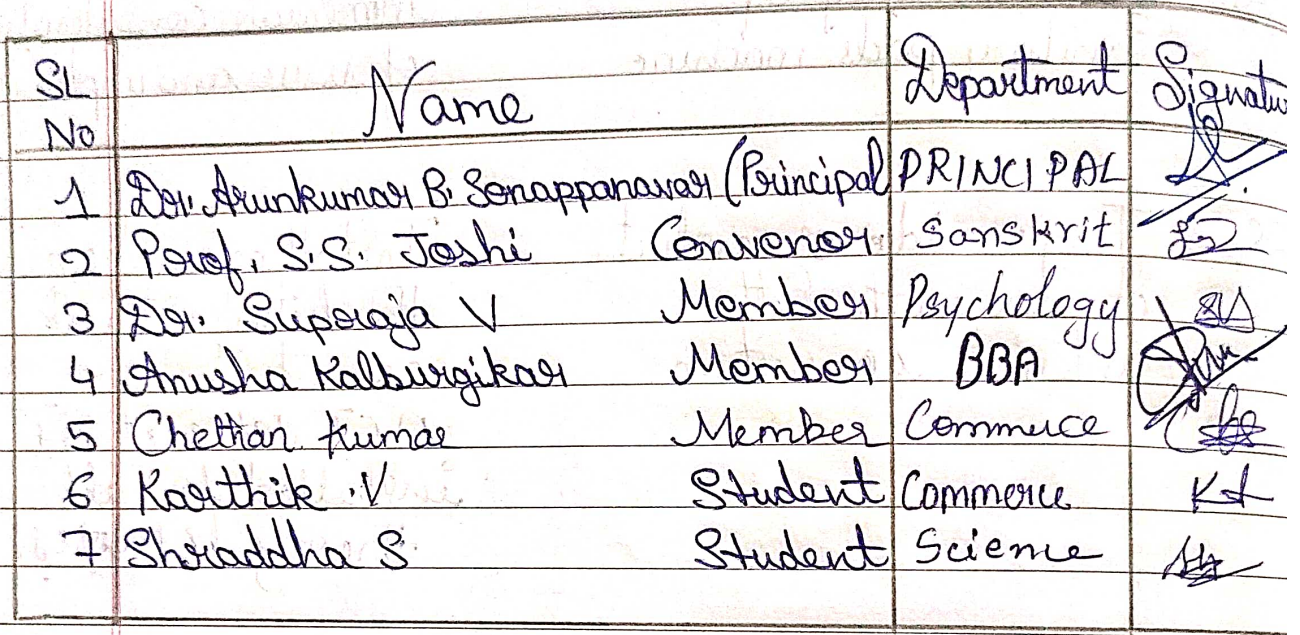 SL No Name Department Signatu
1 Dr. Arunkumar B. Sonappanavar (Principal PRINCIPAL
2 Prof. S.S. Joshi Convenor Sanskrit
3 Dr. Supraja V Member Psychology
4 Anusha Kalburgikar Member BBA
5 Chethan Kumar Member Commuce
6 Karthik .V Student Commerce Kt
7 Shraddha S Student Science